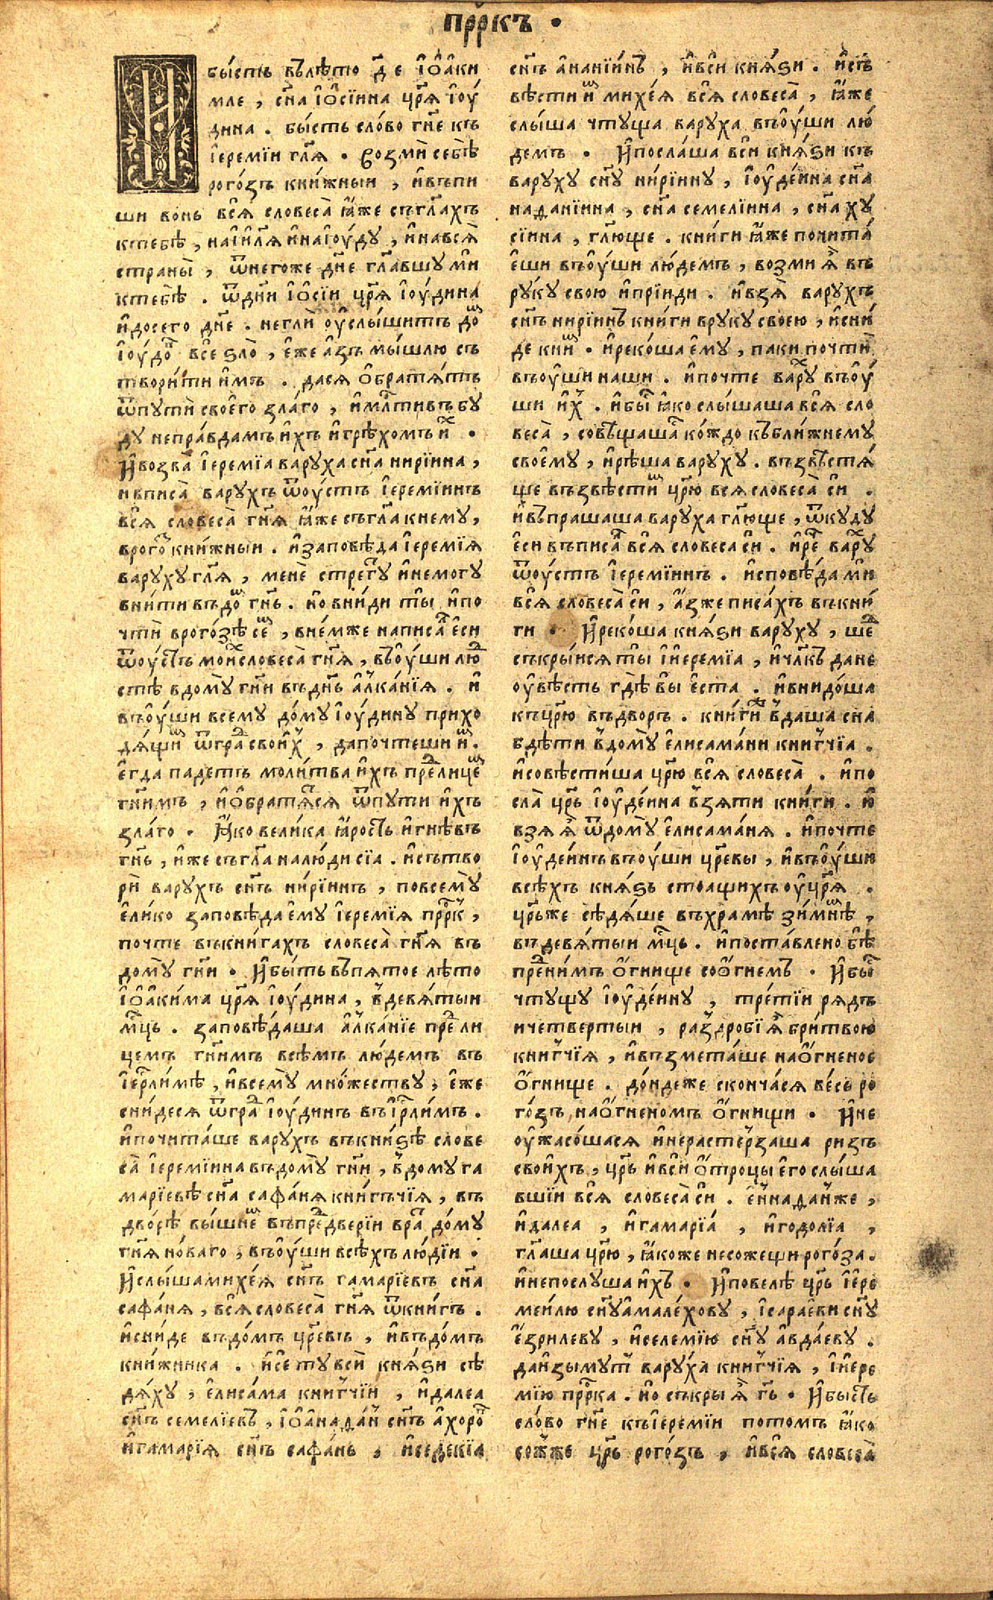 прⷪ҇рⷪ҇къ •
И бы́сть въ лѣ́то д҃ е іѡаки
мле , сн҃а іѡсіина цр҃ѧ іоу
дина . бы́сть сло́во гн҃е къ
іеремі́и гл҃ѧ • возмѝ себѣ̀
рого́зъ кни́жныи , и въпи
ши во́нь всѧ̀ словеса̀ ꙗже съгл҃ахъ
к тебѣ̀ , на і҆и҃лѧ и на іоу́ду , и на всѧ̀
страны̀ , ѿ него́же дн҃е гл҃авшу ми
к тебѣ̀ . ѿ дн҃іи іѡсі́и цр҃ѧ іоу́дина
и до сего дн҃е . негли̑ оуслы́шитъ до́ⷨ
іоудоⷡ всѐ ѕло̀ , е́же а́зъ мы́шлю съ
твори́ти имъ . да сѧ ѡбратѧ́тъ
ѿ путѝ свое́го зла́го , и млⷭ҇тивъ бу
ду непра́вдамъ и́хъ и грѣхо́мъ иⷯ •
И возва̀ іеремі́а вару́ха сн҃а нирі́ина ,
и вписа̀ варухъ ѿ оустъ іеремі́инъ
всѧ̀ словеса̀ гн҃ѧ ꙗже съгл҃а к нему ,
в рогоⷥ кни́жныи . и заповѣ́да іеремі́ѧ
вару́ху гл҃ѧ , менѐ стрегу́тъ и не могу
вни́ти въ доⷨ гн҃ь . но вни́ди ты̀ и по
чтѝ в рого́зѣ сеⷨ , в не́мже написаⷧ еси̑
ѿ оустъ моиⷯ словеса̀ гн҃ѧ , въ оу́ши люⷣ
стѣ̀ в дому̀ гн҃и въ дн҃ь а́лка́нїѧ . и
въ оу́ши всему до́му іоу́дину прихо
дѧ́щиⷨ ѿ граⷣ своиⷯ , да почтеши иⷨ .
егда̀ падетъ моли́тва и́хъ преⷣ лицеⷨ
гн҃имъ , и ѡбратѧ́тсѧ ѿ пути и́хъ
зла́го • ꙗко вели́ка ꙗрость и гнѣ́въ
гн҃ь , и́же съгл҃а на лю́ди сїа . и сътво
рѝ вару́хъ сн҃ъ нирі́инъ , по всему̀
ели́ко заповѣ́да ему̀ іеремі́ѧ прⷪ҇рⷪ҇къ ,
почте въ кни́гахъ словеса̀ гн҃ѧ въ
дому̀ гн҃и • И бы́сть въ пѧ́тое лѣ́то
іѡа́кима цр҃ѧ іоу́дина , в девѧ́тыи
мцⷭ҇ь . заповѣ́даша а́лка́нїе преⷣ ли
це́мъ гн҃имъ всѣ́мъ лю́демъ въ
іерⷭ҇ли́мѣ , и всему̀ мно́жеству , е́же
сни́десѧ ѿ граⷣ іоу́динъ въ іерⷭ҇ли́мъ .
и почита́ше вару́хъ въ кни́ѕѣ слове
са̀ іеремі́ина въ дому̀ гн҃и , в дому га
марі́евѣ сн҃а сафа́нѧ кни́гъчїѧ , въ
дворѣ̀ вы́шнеⷨ въ преⷣдве́рїи враⷮ до́му
гн҃ѧ но́ваго , въ оу́ши всѣ́хъ лю́дїи •
И слы́ша михе́ѧ сн҃ъ гамарі́евъ сн҃а
сафа́нѧ , всѧ̀ словеса̀ гн҃ѧ ѿ кни́гъ .
и сни́де въ до́мъ цр҃евъ , и въ до́мъ
кни́жника . и се ту всѝ кнѧ́ѕи сѣ
дѧ́ху , елиса́ма кни́гчїи , и далеа
сн҃ъ семелі́евъ , іѡанада́н сн҃ъ ахороⷡ
и гамарі́ѧ сн҃ъ сафа́нь , и седекі́а
сн҃ъ ана́нїинъ , и всѝ кнѧ́ѕи . и съ
вѣ́сти иⷨ михе́ѧ всѧ̀ словеса̀ , ꙗже
слы́ша чту́ща вару́ха въ оу́ши лю́
демъ • И посла́ша всѝ кнѧ́ѕи къ
вару́ху сн҃у нирі́ину , іоуде́ина сн҃а
на данїина , сн҃а семелі́ина , сн҃а ху
сі́ина , гл҃юще . кни́ги ꙗже почита́
еши въ оу́ши лю́демъ , возми ѧ̀ въ
ру́ку свою и прїиди . и взѧ̀ вару́хъ
сн҃ъ нирі́инъ кни́ги в руку своею , и сни́
де к ниⷨ • и реко́ша ему , паки почтѝ
въ оу́ши на́ши . и почте вару́ⷯ въ оу́
ши иⷯ . и быⷭ҇ ꙗко слы́шаша всѧ̀ сло
веса̀ , совѣща́шаⷭ ко́ждо къ бли́жнему
своему , и рѣ́ша вару́ху . възвѣстѧ́
ще възвѣсти́мъ цр҃ю всѧ словеса̀ си .
и въпраша́ша вару́ха гл҃юще , ѿкуду
еси въписаⷧ всѧ̀ словеса си . и реⷱ҇ варуⷯ
ѿ оустъ іеремі́инъ . и сповѣ́да ми
всѧ̀ словеса̀ си , а́з же писа́хъ въ кни́
ги • И реко́ша кнѧ́ѕи вару́ху , шеⷣ
съкры́исѧ ты̀ и іереміа , и чл҃къ да не
оувѣ́сть гдѣ̀ вы̀ е́ста . и внидо́ша
къ цр҃ю въ дво́ръ . кни́ги же в даша сна
бдѣти в дому̀ елисама́ни кни́гчїа .
и совѣсти́ша цр҃ю всѧ̀ словеса̀ . и по
сла̀ цр҃ь іоуде́ина взѧти кни́ги . и
взѧ̀ ѧ̀ ѿ дому̀ елисама́нѧ . и почте
іоуде́инъ въ оу́ши цр҃евы , и въ оу́ши
всѣ́хъ кнѧ́ѕь стоащихъ оу цр҃ѧ .
цр҃ь же сѣдѧ́ше въ храмѣ̀ зи́мнеⷨ ,
въ девѧ́тыи мцⷭ҇ь . и поставлено бѣ̀
преⷣ ни́мъ о́гнище со о́гнемъ • И быⷭ҇
чту́щу іоуде́ину , тре́тїи рѧ́дъ
и четвертыи , раздроби̑ ѧ̀ бри́твою
кни́гчїѧ , и възмета́ше на о́гненое
о́гнище . до́ндеже сконча́сѧ ве́сь ро
го́зъ на о́гненомъ о́гнищи • И не
оужасо́шасѧ и не растерза́ша ри́зъ
свои́хъ , цр҃ь и всѝ о́троцы его слы́ша
вшїи всѧ̀ словеса̀ си . еннада́н же ,
и далеа , и гамарі́а , и годолі́а ,
гл҃аша цр҃ю , ꙗкоже не сожещи рого́за .
и не послуша и́хъ • И повелѣ̀ цр҃ь іере
меи́лю сн҃у амале́хову , і сара́еви сн҃у
е́зрилеву , и селемі́ю сн҃у авда́еву .
да изымутъ вару́ха кни́гчїѧ , і иере
мі́ю прⷪ҇рⷪ҇ка . и съкры ѧ̀ гь҃ • И бы́сть
сло́во гн҃е къ іеремі́и пото́мъ ꙗко
сожже цр҃ь рого́зъ , и всѧ̀ словеса̀